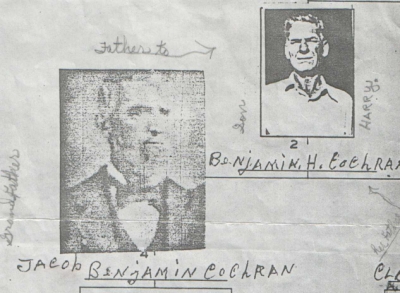 Father to
Son
HARRY
2
BENJAMIN. H. COCHRAN
Grandfather
4
JACOB BENJAMIN COCHRAN
CL